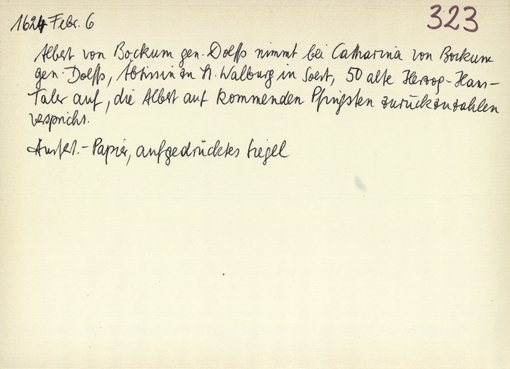 1624 Febr. 6 323
Albert von Bockum gen. Dolffs nimmt bei Catharina von Bockum
gen. Dolffs, Äbtissin zu St. Walburg in Soest, 50 alte Herzog-Hans-
Taler auf, die Albert auf kommenden Pfingsten zurückzuzahlen
verspricht.
Ausfert.-Papier, aufgedrücktes Siegel